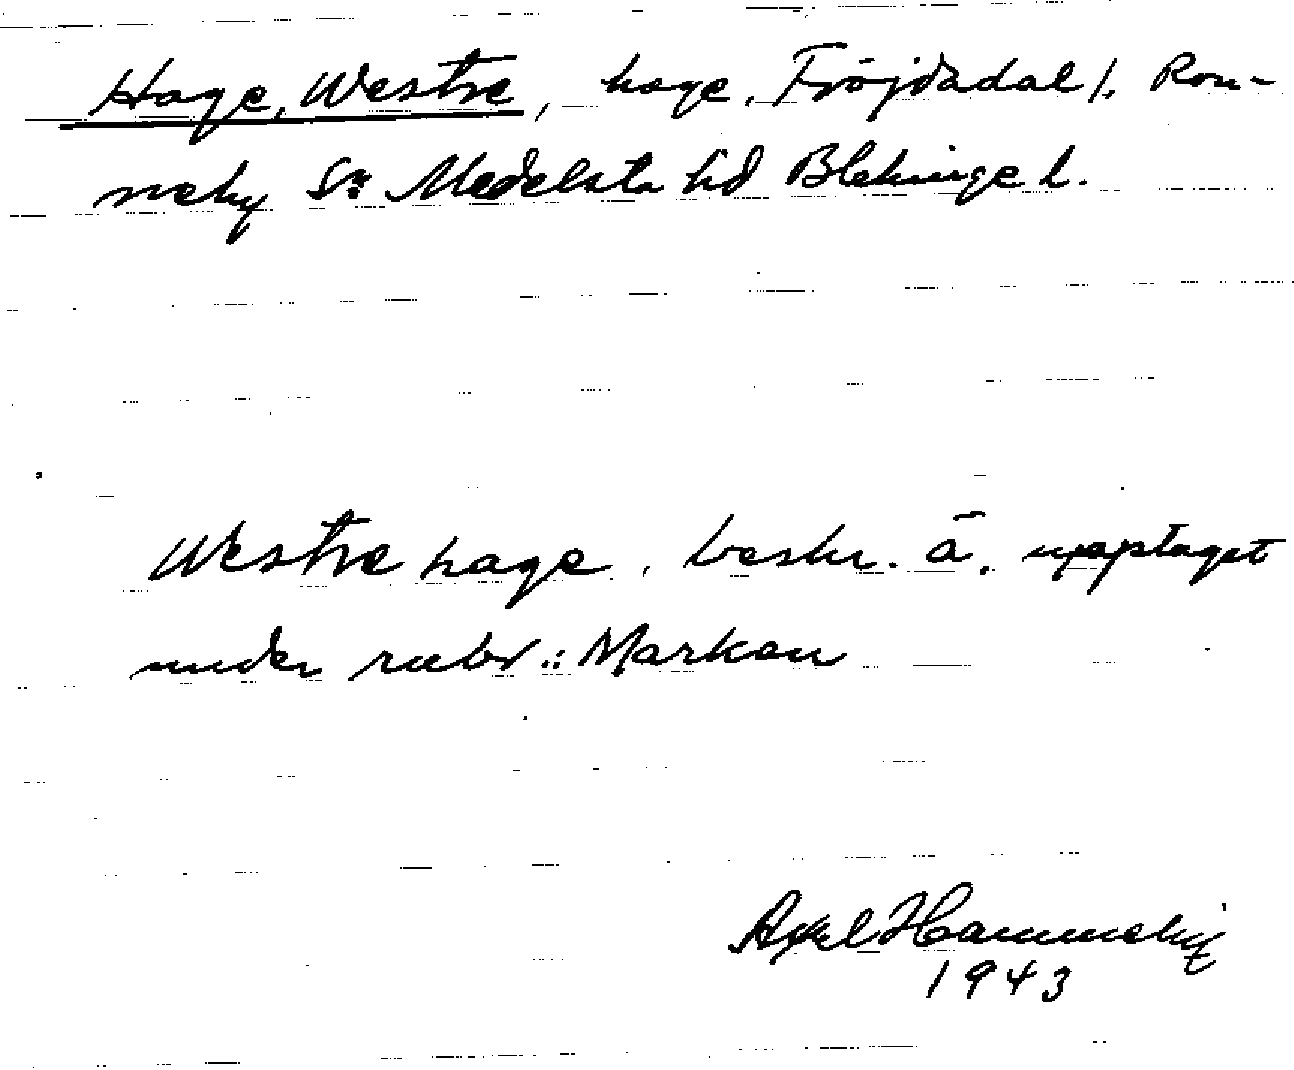 Hage, Westre, hage, Fröjdadal /. Ron-
neby Sn Medelsta hd Blekinge l.
Westre hage, beskr. å. upptaget
under rubr.: Markan
Axel
1943